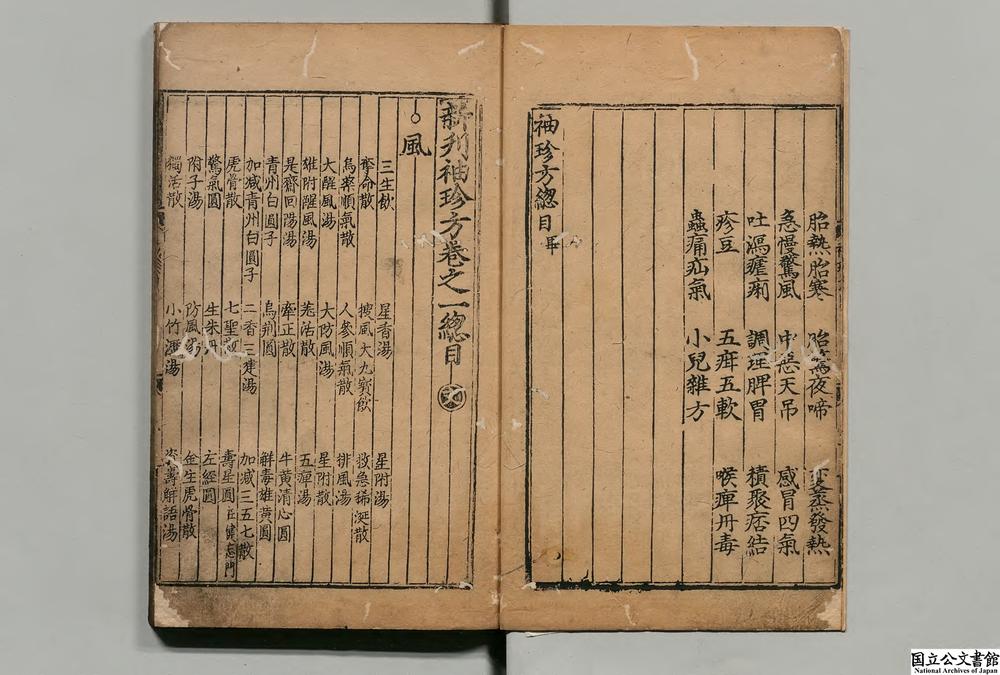 胎熱胎寒 胎驚夜啼 変蒸發熱
急慢驚風 中惡天吊 感冒四氣
吐瀉瘧痢 調理脾胃 積聚痞結
疹豆 五疳五軟 喉痺丹毒
蟲痛疝氣 小兒雜方
袖珍方總目畢
新刋袖珍方卷之一總目
○風
三生飲 星香湯 星附湯
奪命散 搜風大九寳飲 救急稀涎散
烏藥順氣散 人參順氣散 排風湯
大醒風湯 大防風湯 星附散
雄附醒風湯 羗活散 五痺湯
是齋回陽湯 牽正散 牛黄清心圓
青州白圓子 烏荊圓 觧毒雄黄圓
加减青州白圓子 二香三建湯 加减三五七散
虎骨散 七聖散 壽星圓
驚氣圓 生朱丹 左經圓
附子湯 防風湯 金生虎骨散
獨活散 小竹瀝湯 解語湯
国立公文書館
National Archives of Japan